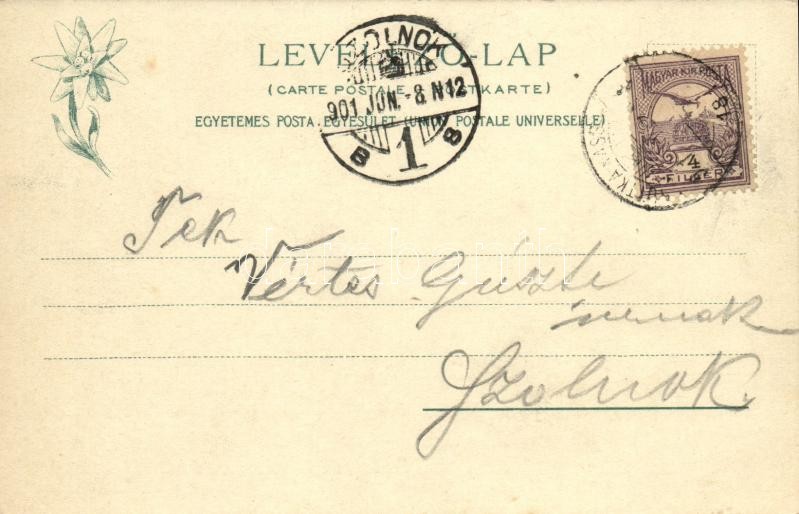 LEVELEZŐ-LAP
(CARTE POSTALE – POSTKARTE)
EGYETEMES POSTA EGYESÜLET (UNION POSTALE UNIVERSELLE)
SZOLNOK
901 JUN.-8. N12
B 1 8
MAGYAR KIR. POSTA
4
FILLÉR
Tek
Vértes Guszti
urnak
Szolnok.